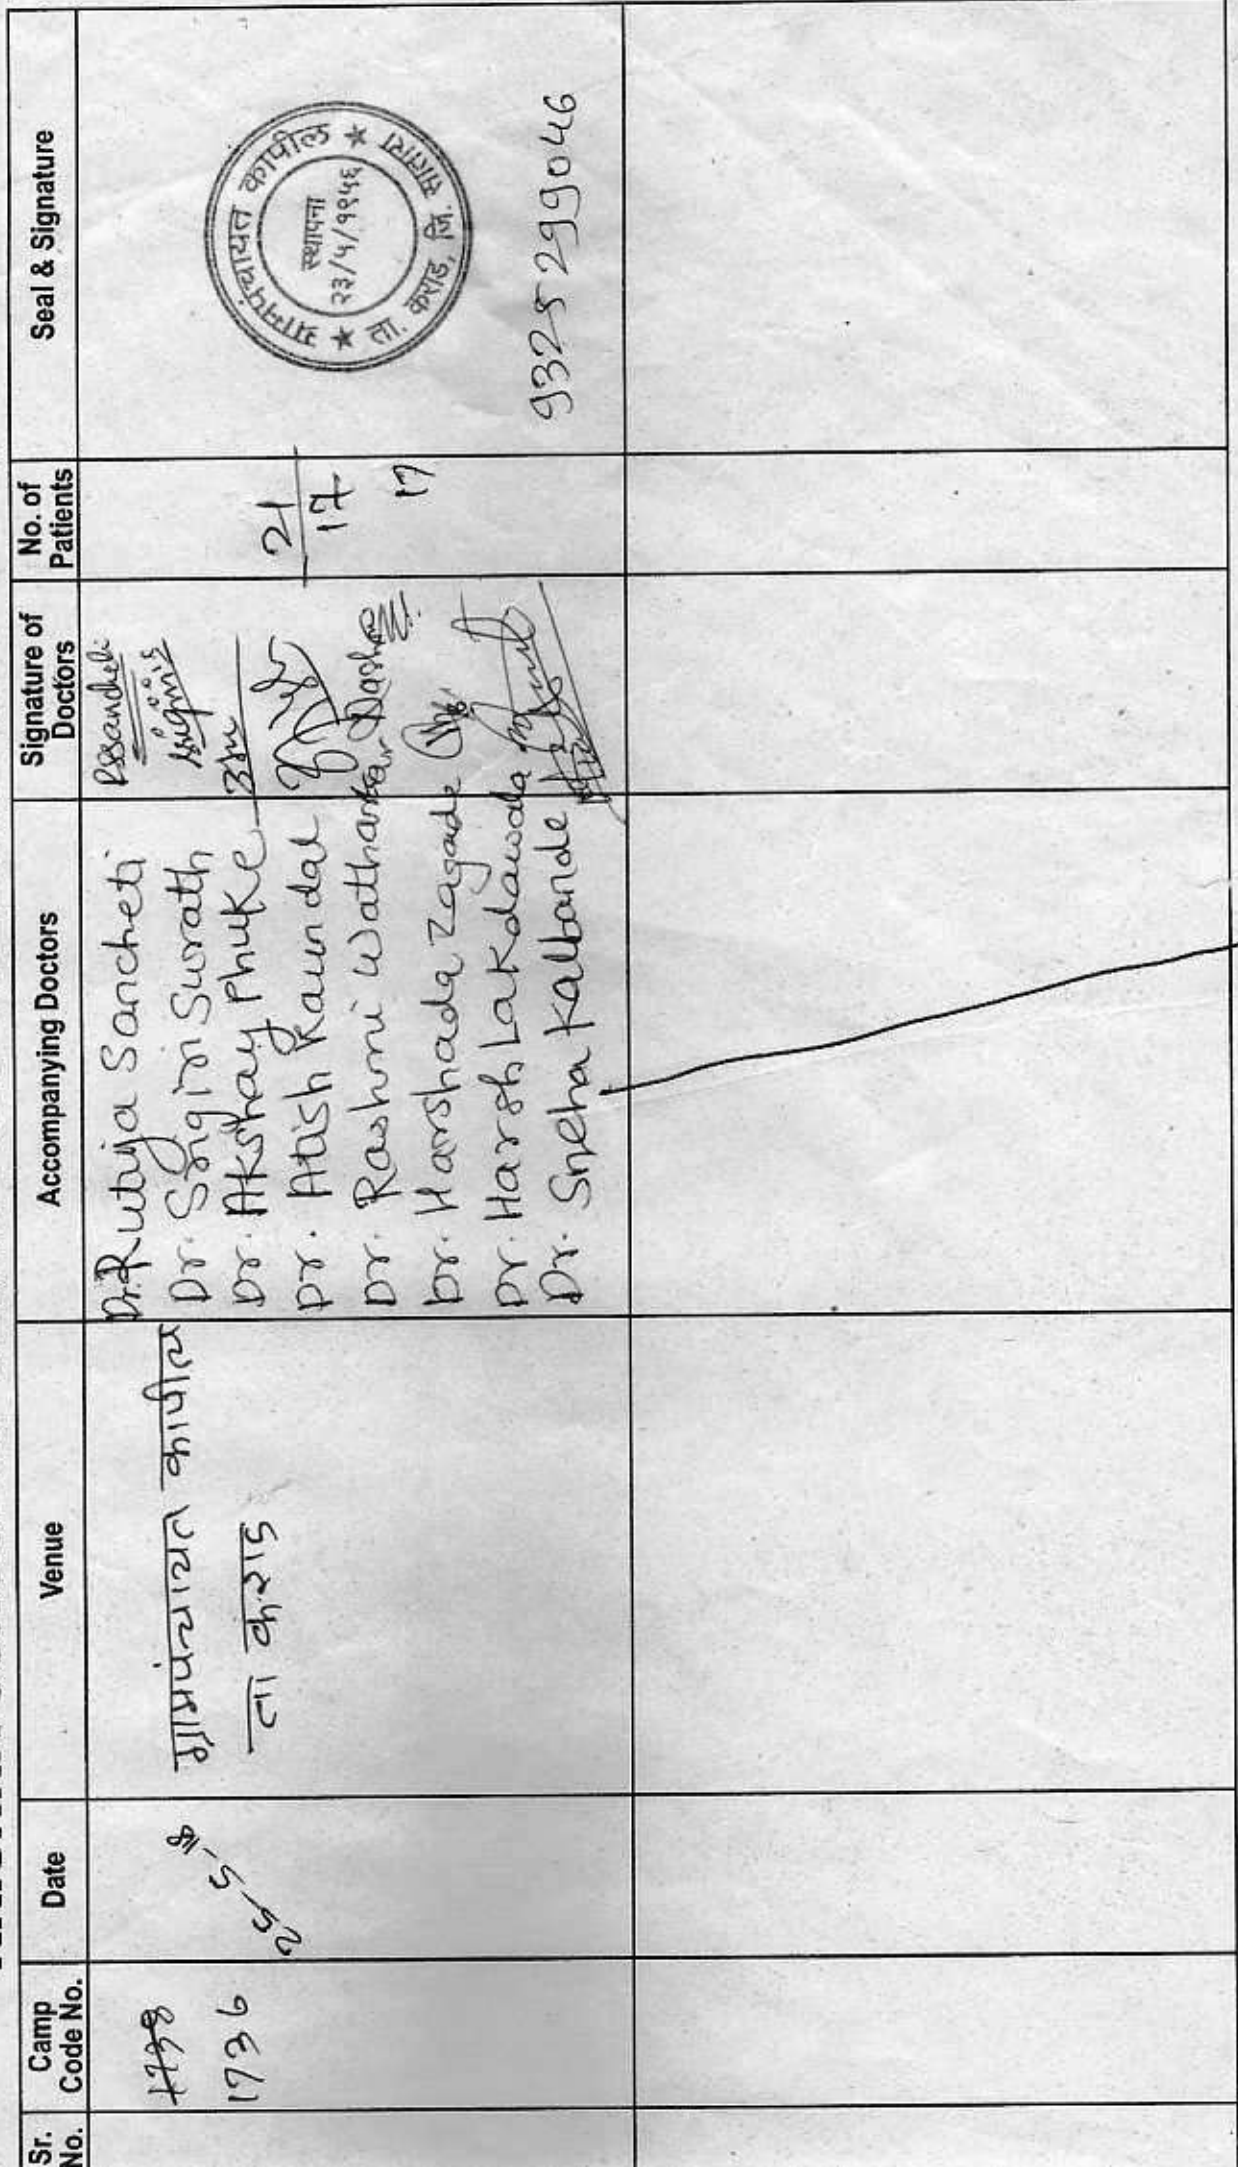 Sr. No.
Camp Code No.
Date
Venue
Accompanying Doctors
Signature of Doctors
No. of Patients
Seal & Signature
1738
1736
25-5-18
ग्रामपंचायत कापील
ता कराड
Dr. Rutuja Sancheti
Dr. Srigiri Surath
Dr. Akshay Phuke
Dr. Atish Kaundal
Dr. Rashmi Watharkar
Dr. Harshada Zagade
Dr. Harsh Lakdawala
Dr. Sneha Kalbande
Rssancheti
21
17
17
ग्रामपंचायत कापील
स्थापना
२३/५/१९५६
ता. कराड, जि. सातारा
9325299046